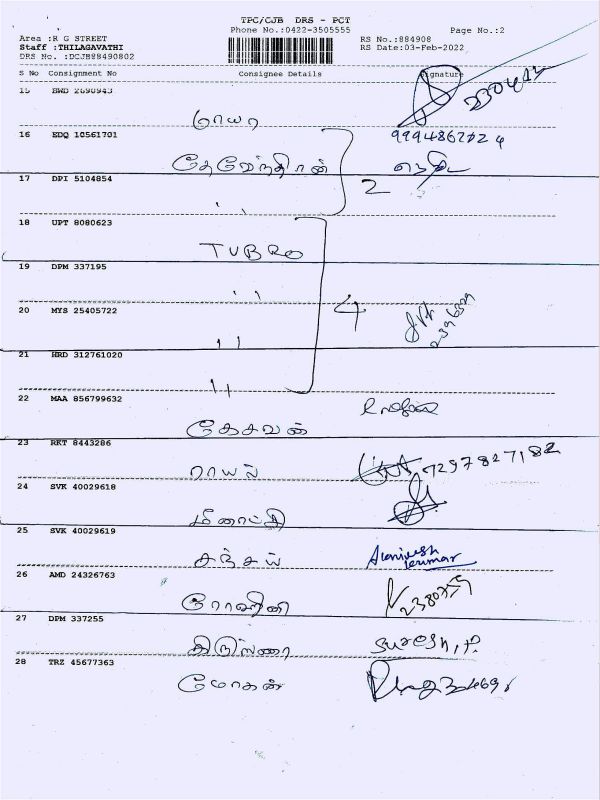 TPC/CJB DRS - PCT
Phone No.:0422-3505555
Page No.:2
Area :R G STREET
RS No.:884908
Staff :THILAGAVATHI
RS Date:03-Feb-2022
DRS No. :DCJB88490802
S No Consignment No Consignee Details Signature
15 BWD 2690943
16 EDQ 10561701
தேவேந்திரன்
2
17 DPI 5104854
"
18 UPT 8080623
TUBRO
19 DPM 337195
"
4
20 MYS 25405722
"
21 HRD 312761020
"
22 MAA 856799632
கேசவன்
23 RKT 8443286
ராயல் 7297827182
24 SVK 40029618
மீனாட்சி
25 SVK 40029619
சஞ்சய்
kumar
26 AMD 24326763
ரோஹினி
27 DPM 337255
Suresh.P.
28 TRZ 45677363
மோகன்